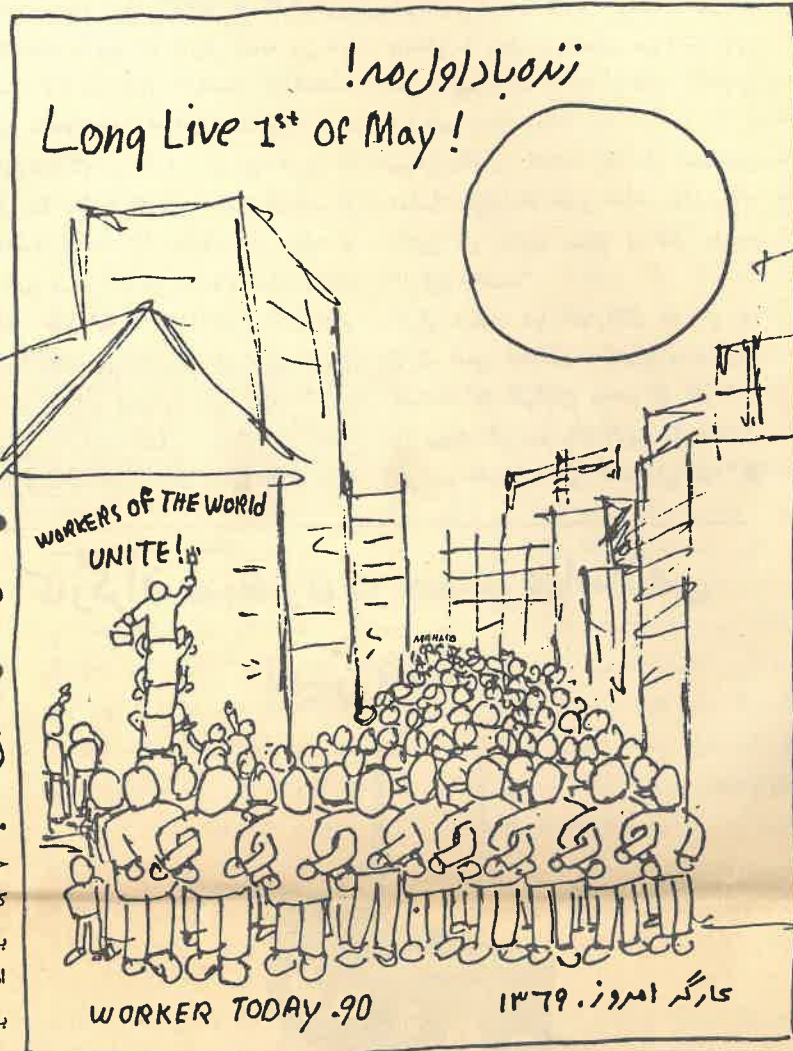 زنده باد اول مه!
Long Live 1st OF May!
WORKERS OF THE WORLD
UNITE!
WORKER TODAY .90
کارگر امروز. ۱۳۶۹